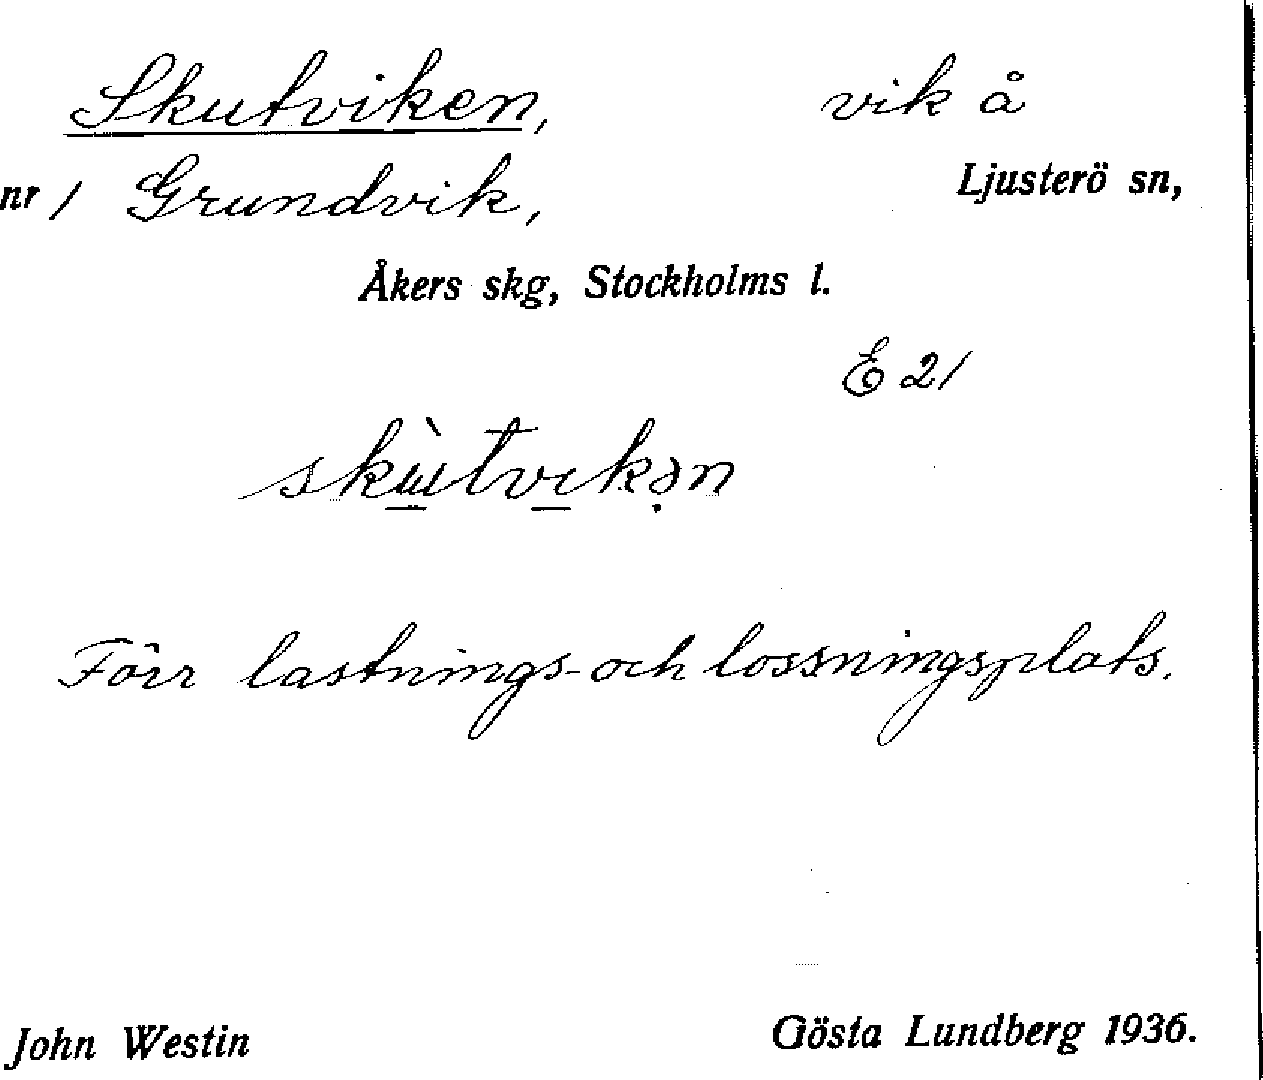 Skutviken, vik å
nr 1 Grundvik, Ljusterö sn,
Åkers skg, Stockholms l.
E 21
skɯ̀tvikən
Förr lastnings- och lossningsplats.
John Westin Gösta Lundberg 1936.